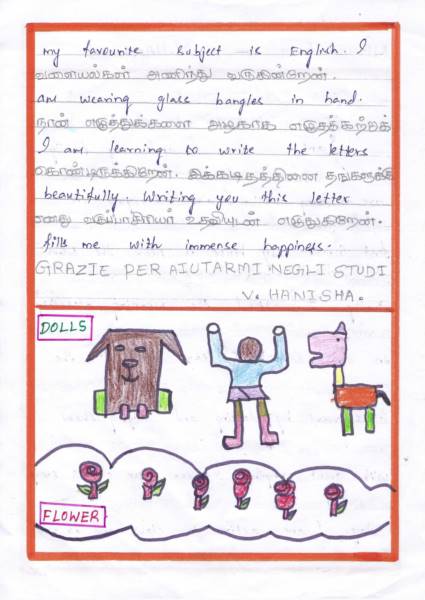 my favourite subject is English. I
வளையல்கள் அணிந்து வருகின்றேன்.
am wearing glass bangles in hand.
நான் எழுத்துக்களை அழகாக எழுதக்கற்றுக்
I am learning to write the letters
கொண்டிருக்கிறேன். இக்கடிதத்தினை தங்களுக்கு
beautifully. Writing you this letter
எனது வகுப்பாசிரியர் உதவியுடன் எழுதுகிறேன்.
fills me with immense happiness.
GRAZIE PER AIUTARMI NEGLI STUDI
V. HANISHA.
DOLLS
FLOWER